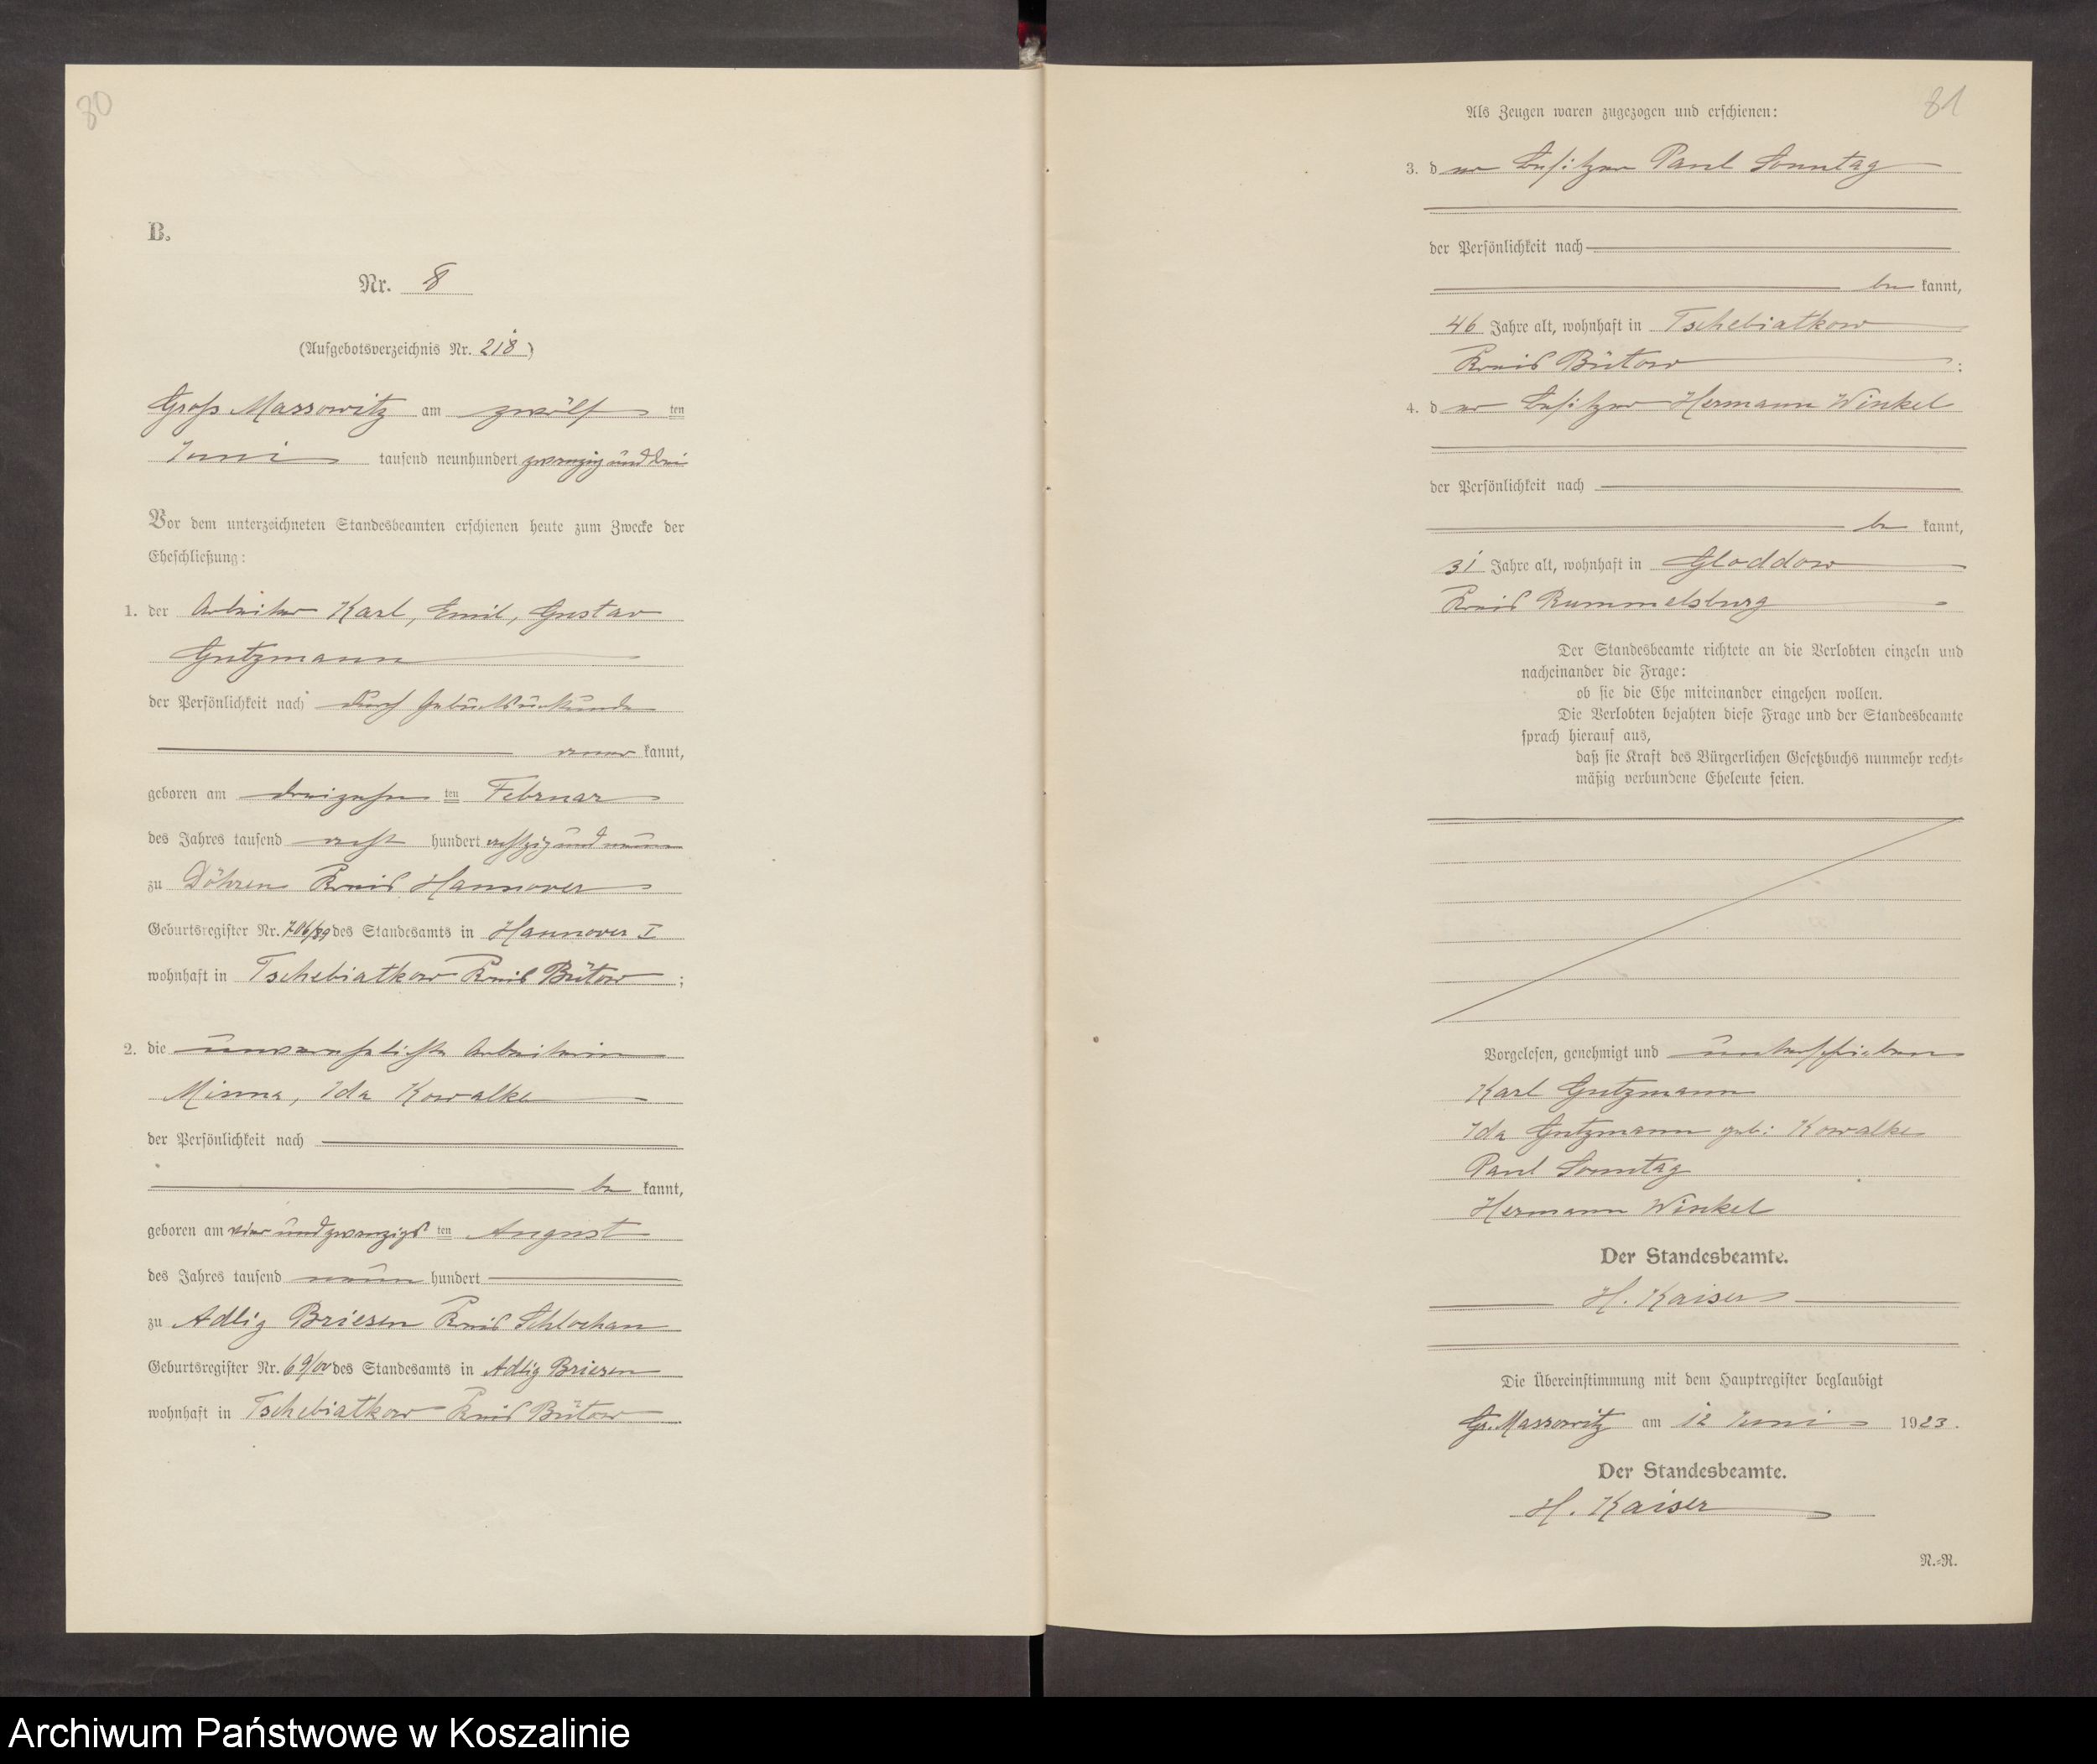 80
B.
Nr. 8
(Aufgebotsverzeichnis Nr. 218)
Groß Massowitz am zwölf ten
Juni tausend neunhundert zwanzig und drei
Vor dem unterzeichneten Standesbeamten erschienen heute zum Zwecke der
Eheschließung:
1. der Arbeiter Karl, Emil, Gustav
Gutzmann
der Persönlichkeit nach durch Geburtsurkunde
aner kannt,
geboren am dreizehn ten Februar
des Jahres tausend acht hundert achtzig und neun
zu Döhren Kreis Hannover
Geburtsregister Nr. 706/89 des Standesamts in Hannover I
wohnhaft in Tschebiatkow Kreis Bütow ;
2. die unverehelichte Arbeiterin
Minna, Ida Kowalke
der Persönlichkeit nach
be kannt,
geboren am vier und zwanzigs ten August
des Jahres tausend neun hundert
zu Adlig Briesen Kreis Schlochau
Geburtsregister Nr. 69/00 des Standesamts in Adlig Briesen
wohnhaft in Tschebiatkow Kreis Bütow
81
Als Zeugen waren zugezogen und erschienen:
3. d er Besitzer Paul Sonntag
der Persönlichkeit nach
be kannt,
46 Jahre alt, wohnhaft in Tschebiatkow
Kreis Bütow ;
4. d er Besitzer Hermann Winkel
der Persönlichkeit nach
be kannt,
31 Jahre alt, wohnhaft in Gloddow
Kreis Rummelsburg
Der Standesbeamte richtete an die Verlobten einzeln und
nacheinander die Frage:
ob sie die Ehe miteinander eingehen wollen.
Die Verlobten bejahten diese Frage und der Standesbeamte
sprach hierauf aus,
daß sie Kraft des Bürgerlichen Gesetzbuchs nunmehr recht-
mäßig verbundene Eheleute seien.
Vorgelesen, genehmigt und unterschrieben
Karl Gutzmann
Ida Gutzmann geb: Kowalke
Paul Sonntag
Hermann Winkel
Der Standesbeamte.
H. Kaiser
Die Übereinstimmung mit dem Hauptregister beglaubigt
Gr. Massowitz am 12 Juni 1923.
Der Standesbeamte.
H. Kaiser
N.-R.
Archiwum Państwowe w Koszalinie